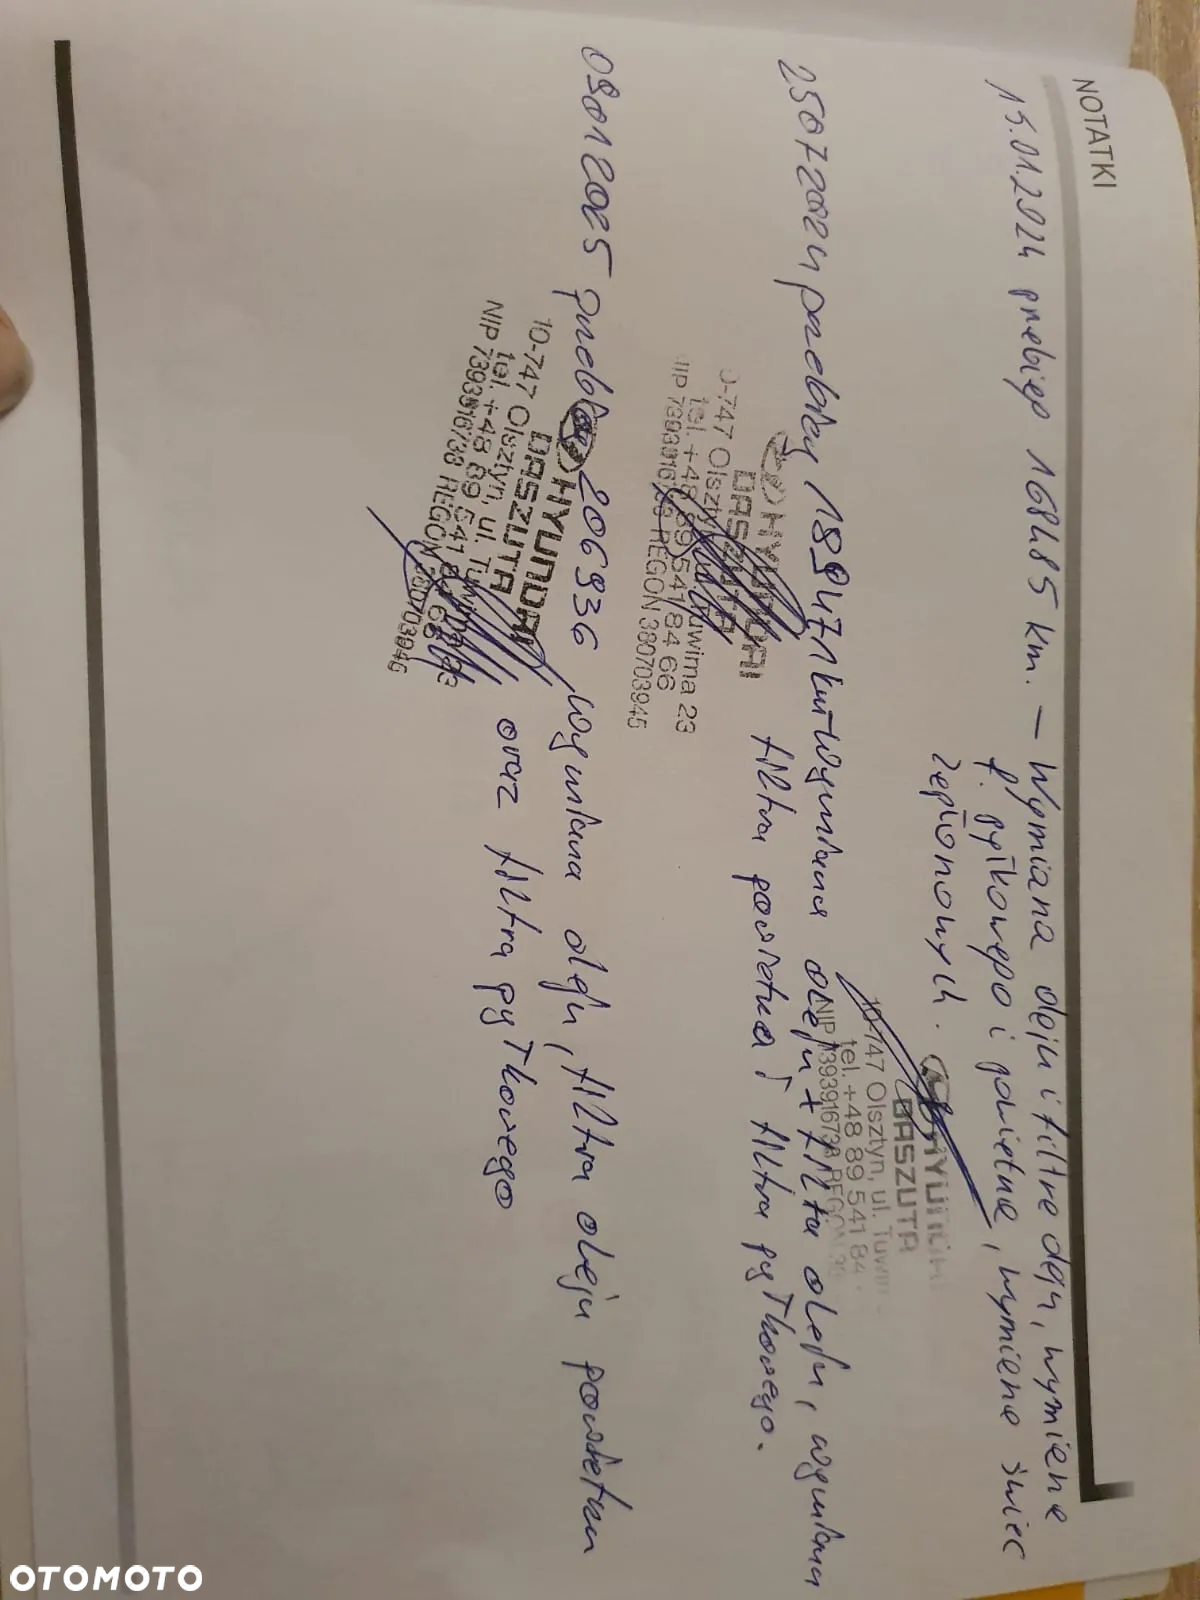 NOTATKI
15.01.2024 przebieg 168485 km. – Wymiana oleju i filtra oleju, wymiana
f. pyłkowego i powietrza, wymiana świec
zapłonowych.
HYUNDAI
DASZUTA
10-747 Olsztyn, ul. Tuwim
tel. +48 89 541 84
NIP 7393916738 REGON 38
25072024 przebieg 189471km wymiana oleju + filtra oleju, wymiana
filtra powietrza i filtra pyłkowego.
HYUNDAI
DASZUTA
0-747 Olsztyn, ul. Tuwima 23
tel. +48 89 541 84 66
NIP 7393916738 REGON 380703945
09012025 przebieg 206936 wymiana oleju, filtra oleju powietrza
oraz filtra pyłkowego
HYUNDAI
DASZUTA
10-747 Olsztyn, ul. Tuwima 23
tel. +48 89 541 84 66
NIP 7393916738 REGON 380703945
OTOMOTO